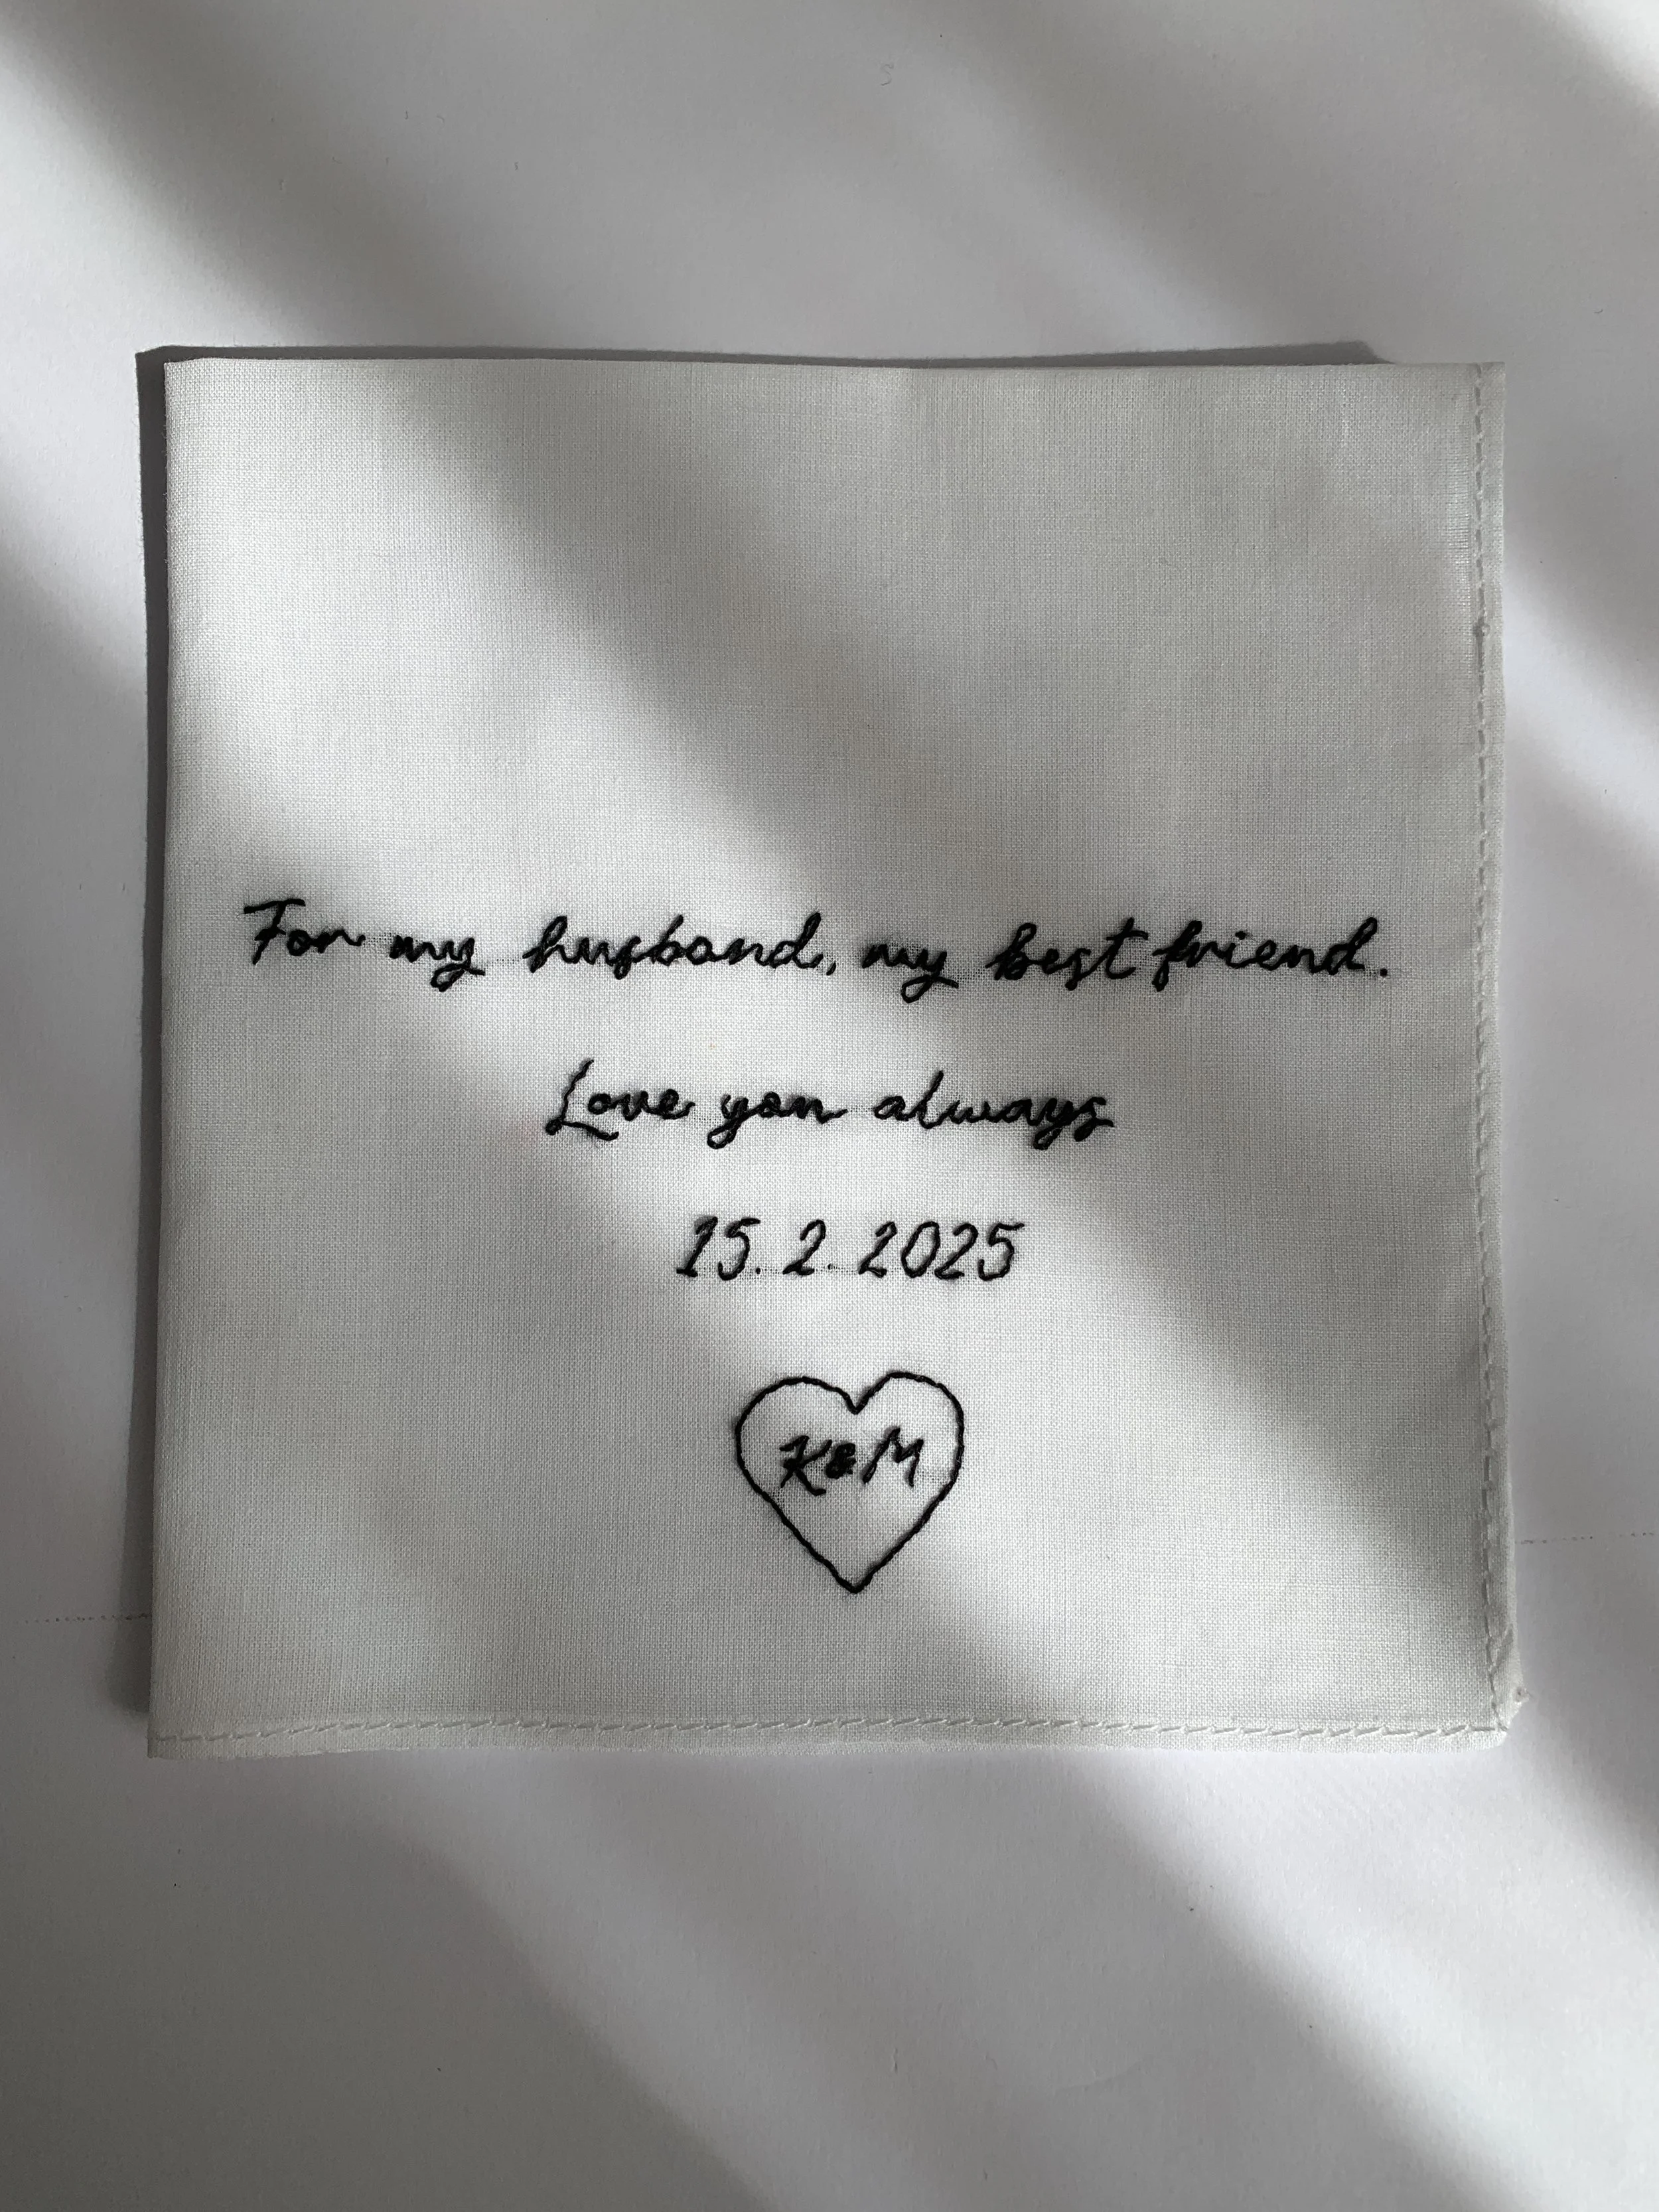 For my husband, my best friend.
Love you always
15. 2. 2025
K&M